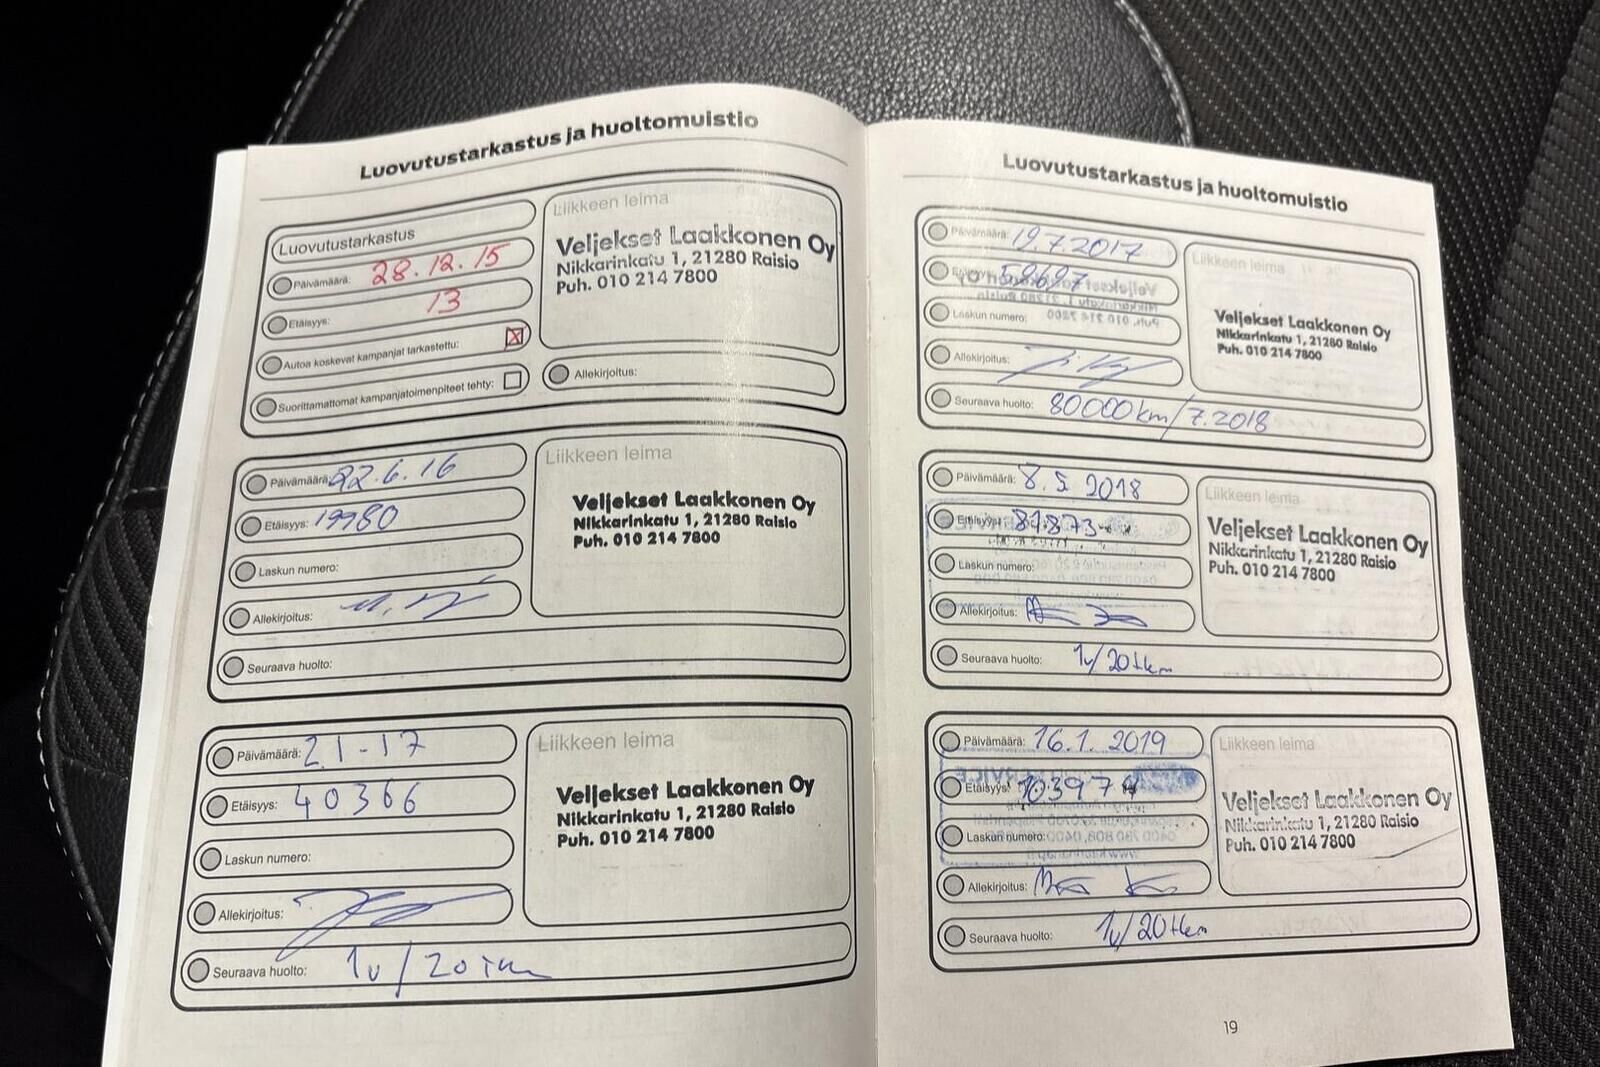 Luovutustarkastus ja huoltomuistio
Luovutustarkastus
Päivämäärä: 28.12.15
Etäisyys: 13
Autoa koskevat kampanjat tarkastettu: X
Suorittamattomat kampanjatoimenpiteet tehty:
Liikkeen leima
Veljekset Laakkonen Oy
Nikkarinkatu 1, 21280 Raisio
Puh. 010 214 7800
Allekirjoitus:
Päivämäärä: 22.6.16
Etäisyys: 19980
Laskun numero:
Allekirjoitus:
Seuraava huolto:
Liikkeen leima
Veljekset Laakkonen Oy
Nikkarinkatu 1, 21280 Raisio
Puh. 010 214 7800
Päivämäärä: 21-17
Etäisyys: 40366
Laskun numero:
Allekirjoitus:
Seuraava huolto: 1v/20tkm
Liikkeen leima
Veljekset Laakkonen Oy
Nikkarinkatu 1, 21280 Raisio
Puh. 010 214 7800
Luovutustarkastus ja huoltomuistio
Päivämäärä: 19.7.2017
Etäisyys:
Laskun numero:
Allekirjoitus:
Seuraava huolto: 80000km/7.2018
Liikkeen leima
Veljekset Laakkonen Oy
Nikkarinkatu 1, 21280 Raisio
Puh. 010 214 7800
Päivämäärä: 8.5 2018
Etäisyys: 81873
Laskun numero:
Allekirjoitus:
Seuraava huolto: 1v/20tkm
Liikkeen leima
Veljekset Laakkonen Oy
Nikkarinkatu 1, 21280 Raisio
Puh. 010 214 7800
Päivämäärä: 16.1.2019
Etäisyys: 103974
Laskun numero:
Allekirjoitus:
Seuraava huolto: 1v/20tkm
Liikkeen leima
Veljekset Laakkonen Oy
Nikkarinkatu 1, 21280 Raisio
Puh. 010 214 7800
19